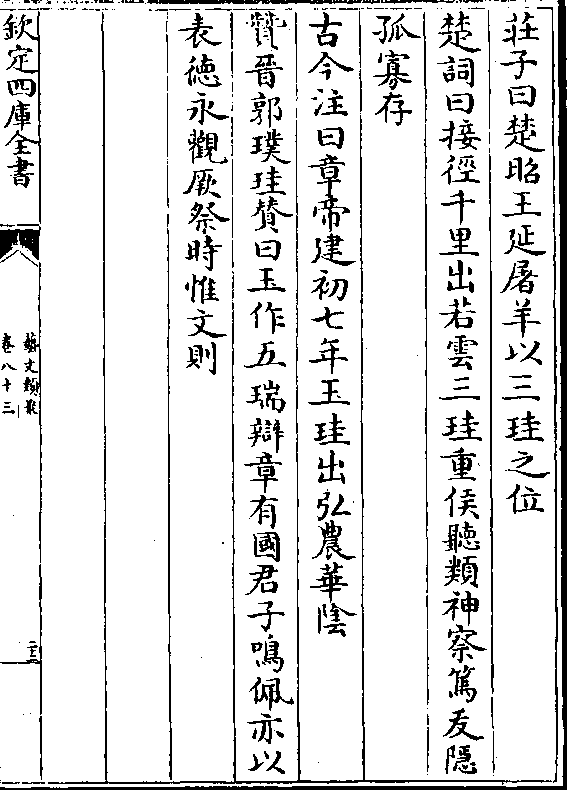 莊子曰楚昭王延屠羊以三珪之位
楚詞曰接徑千里出若雲三珪重侯聽類神察篤夭隠
孤寡存
古今注曰章帝建初七年玉珪出弘農華陰
贊晉郭璞珪賛曰玉作五瑞辯章有國君子鳴佩亦以
表徳永觀厥祭時惟文則
欽定四庫全書
藝文類聚
卷八十三
二十三